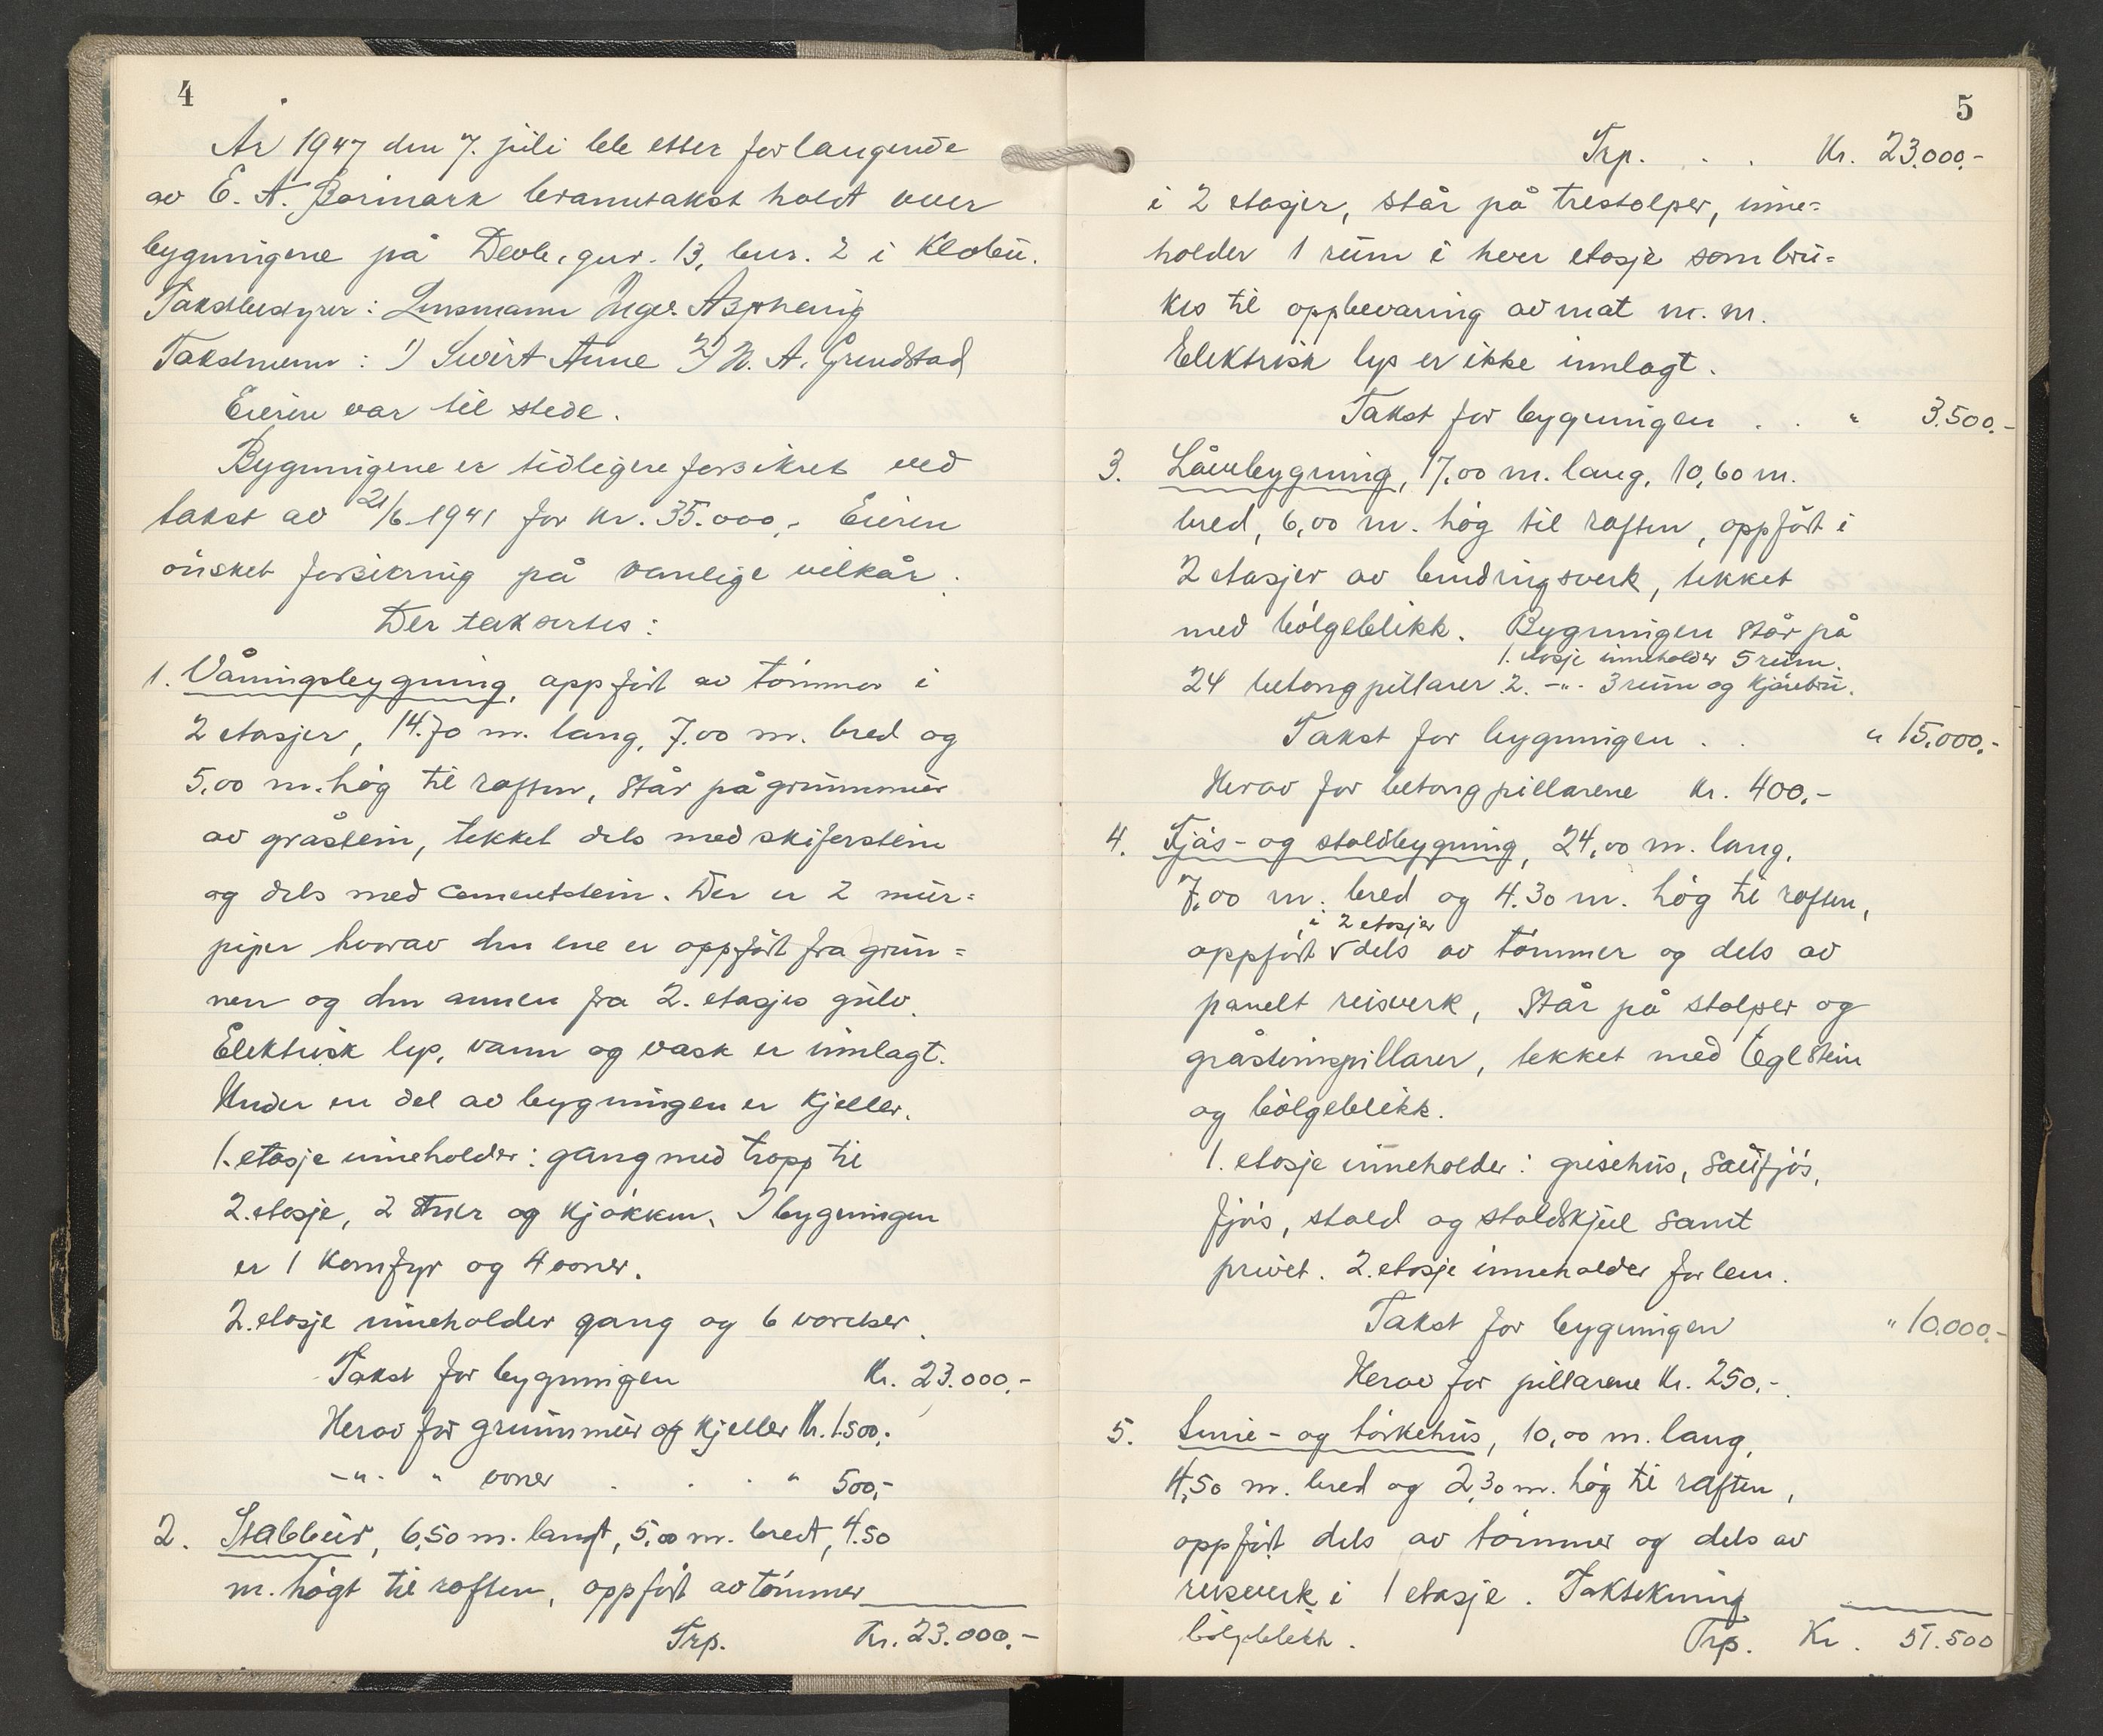 4
År 1947 den 7. juli ble etter forlangende
av E. A. Borimark branntakst holdt over
bygningene på Devle, gnr. 13, bnr. 2 i Klæbu.
Takstbestyrer: Lensmann Inger
Takstmenn: 1) Sivert Aune 2) N. A. Grendstad
Eieren var til stede.
Bygningene er tidligere forsikret ved
takst av 21/6-1941 for kr. 35.000,- Eieren
ønsket forsikring på vanlige vilkår.
Der taksertes:
1. Våningsbygning, oppført av tømmer i
2 etasjer, 14.70 m. lang, 7,00 m. bred og
5,00 m. høg til raften, står på grunnmur
av gråstein, tekket dels med skiferstein
og dels med cementstein. Der er 2 mur=
piper hvorav den ene er oppført fra grun=
nen og den annen fra 2. etasjes gulv.
Elektrisk lys, vann og vask er innlagt.
Under en del av bygningen er kjeller.
1. etasje inneholder: gang med trapp til
2. etasje, 2 stuer og kjøkken. I bygningen
er 1 komfyr og 4 ovner.
2. etasje inneholder gang og 6 værelser.
Takst for bygningen Kr. 23.000,-
Herav for grunnmur og kjeller Kr. 1.500,-
-"- " ovner . . . " 500,-
2. Stabbur, 6,50 m. langt, 5,00 m. bredt, 4.50
m. høgt til raften, oppført av tømmer
Trp. Kr. 23.000,-
5
Trp. . . . Kr. 23.000,-
i 2 etasjer, står på trestolper, inne=
holder 1 rum i hver etasje som bru=
kes til oppbevaring av mat m. m.
Elektrisk lys er ikke innlagt.
Takst for bygningen . . " 3.500,-
3. Låvebygning, 17,00 m. lang, 10,60 m.
bred, 6,00 m. høg til raften, oppført i
2 etasjer av bindingsverk, tekket
med bølgeblikk. Bygningen står på
1. etasje inneholder 5 rum.
24 betongpillarer. 2. -"- 3 rum og kjørebru.
Takst for bygningen . . " 15.000,-
Herav for betongpillarene kr. 400,-
4. Fjøs- og stallbygning, 24,00 m. lang,
7,00 m. bred og 4.30 m. høg til raften,
i 2 etasjer
oppført √ dels av tømmer og dels av
panelt reisverk, står på stolper og
gråsteinspillarer, tekket med teglstein
og bølgeblikk.
1. etasje inneholder: grisehus, saufjøs,
fjøs, stald og staldskjul samt
privet. 2. etasje inneholder forlem.
Takst for bygningen " 10.000,-
Herav for pillarene Kr. 250,-.
5. Smie- og tørkehus, 10,00 m. lang,
4,50 m. bred og 2,30 m. høg til raften,
oppført dels av tømmer og dels av
reisverk i 1 etasje. Taktekning
bølgeblikk. Trp. Kr. 51.500